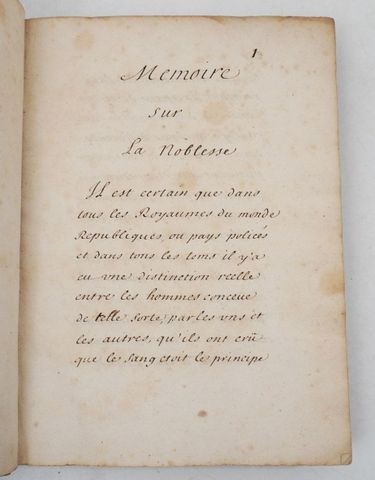 1
Memoire
sur
La Noblesse
Il est certain que dans
tous les Royaumes du monde
Republiques, ou pays policés
et dans tous les tems il y'a
eu vne distinction reelle
entre les hommes conceue
de telle sorte, par les vns et
les autres, qu'ils ont crû
que le sang etoit le principe